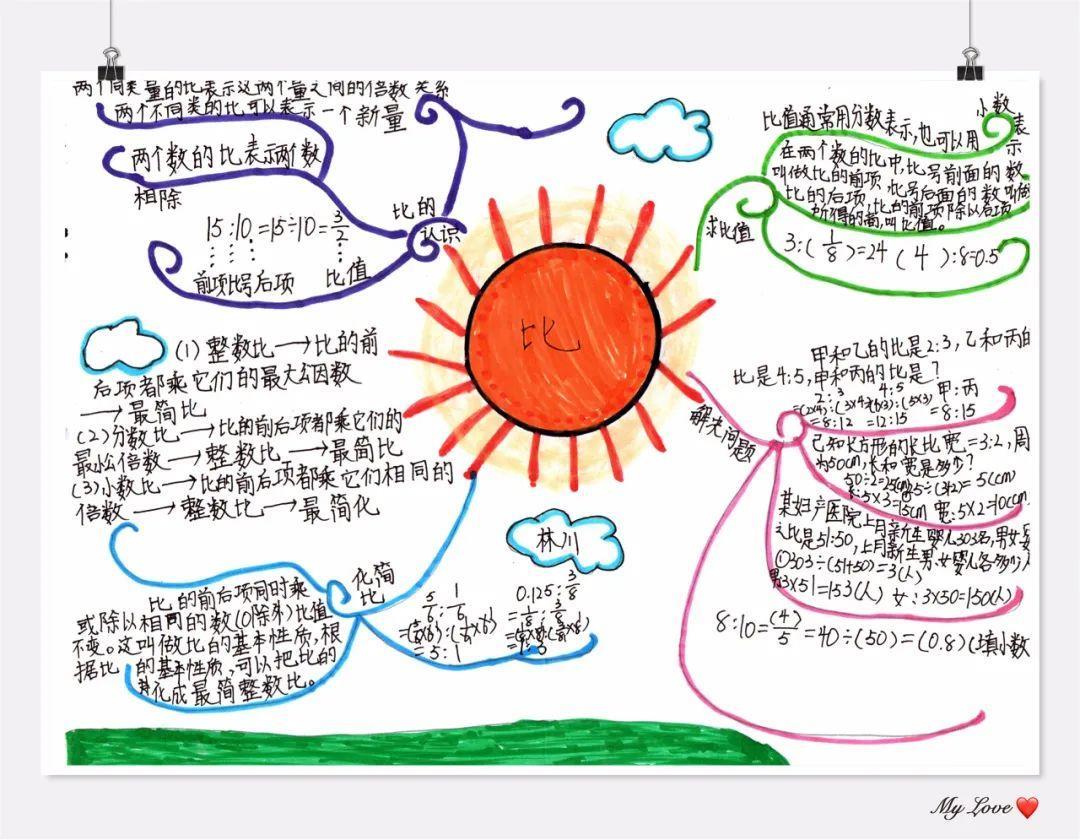 两个同类量的比表示这两个量之间的倍数关系
两个不同类的比可以表示一个新量
两个数的比表示两个数
相除
15:10=15÷10=3/2
前项比号后项 比值
比的
认识
比
比值通常用分数表示,也可以用小数表示
在两个数的比中,比号前面的数
叫做比的前项,比号后面的数叫做
比的后项,比的前项除以后项
所得的商,叫比值。
求比值
3:(1/8)=24 (4):8=0.5
(1)整数比→比的前
后项都乘它们的最大公因数
→最简比
(2)分数比→比的前后项都乘它们的
最小公倍数→整数比→最简比
(3)小数比→比的前后项都乘它们相同的
倍数→整数比→最简化
林川
化简
比
比的前后项同时乘
或除以相同的数(0除外)比值
不变。这叫做比的基本性质,根
据比的基本性质,可以把比的
化成最简整数比。
5/6:1/6
=(5/6×6):(1/6×6)
=5:1
0.125:3/8
=1/8:3/8
=(1/8×8):(3/8×8)
=1:3
解决问题
甲和乙的比是2:3,乙和丙的
比是4:5,甲和丙的比是?
2:3 4:5 甲:丙
=(2×4):(3×4) (4×3):(5×3) =8:15
=8:12 =12:15
已知长方形的长比宽=3:2,周
为50cm,长和宽是多少?
50÷2=25(cm) 25÷(3+2)=5(cm)
长:5×3=15cm 宽:5×2=10(cm
某妇产医院上月新生婴儿303名,男女婴
之比是51:50,上月新生男女婴儿各多少人
①303÷(51+50)=3(人)
男3×51=153(人) 女:3×50=150(人)
8:10=(4)/5=40÷(50)=(0.8)(填小数
My Love